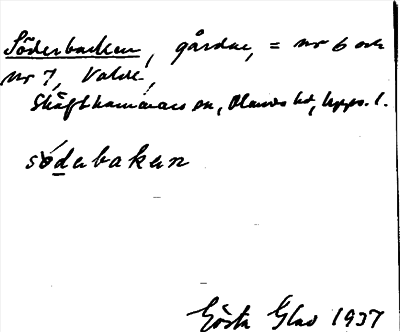 Söderbacken, gårdar, = nr 6 och
nr 7, Valde,
Skäfthammars sn, Olands hd, Upps. l.
södebakan
Gösta Glad 1937